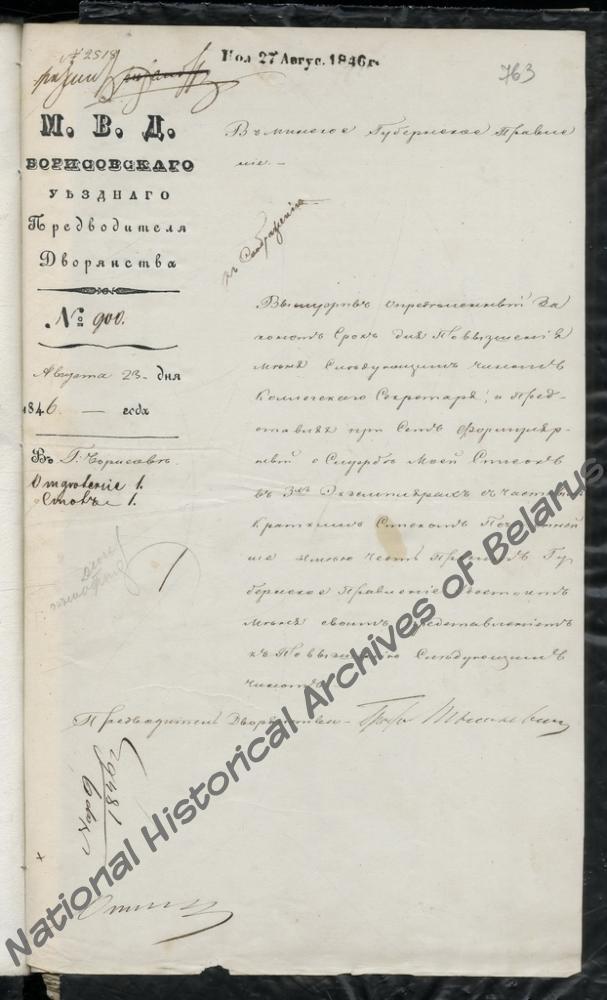 № 2518
Пол 27 Авгус. 1846 г.
763
М. В. Д.
БОРИСОВСКАГО
УѢЗДНАГО
Предводителя
Дворянства
№ 900.
Августа 23 - дня
1846 — года
Въ Г: Борисовѣ.
Отдѣленіе 1.
Столъ 1.
Въ минское Губернское Правле
ніе. —
Выслуживъ опредѣленный За
кономъ Срокъ для Повышенія
меня Слѣдующимъ чиномъ
Коллежскаго Секретаря; и пред-
ставляя при Семъ Формуляр-
ный о Службѣ Моей Списокъ
въ 3хъ Экземплярахъ съ
Краткимъ Спискомъ
имѣю честь Просить Гу-
бернское Правленіе удостоить
меня своимъ представленіемъ
къ Повышенію Слѣдующимъ
чиномъ
Предводитель Дворянства — Графъ Тышкевичъ
National Historical Archives of Belarus